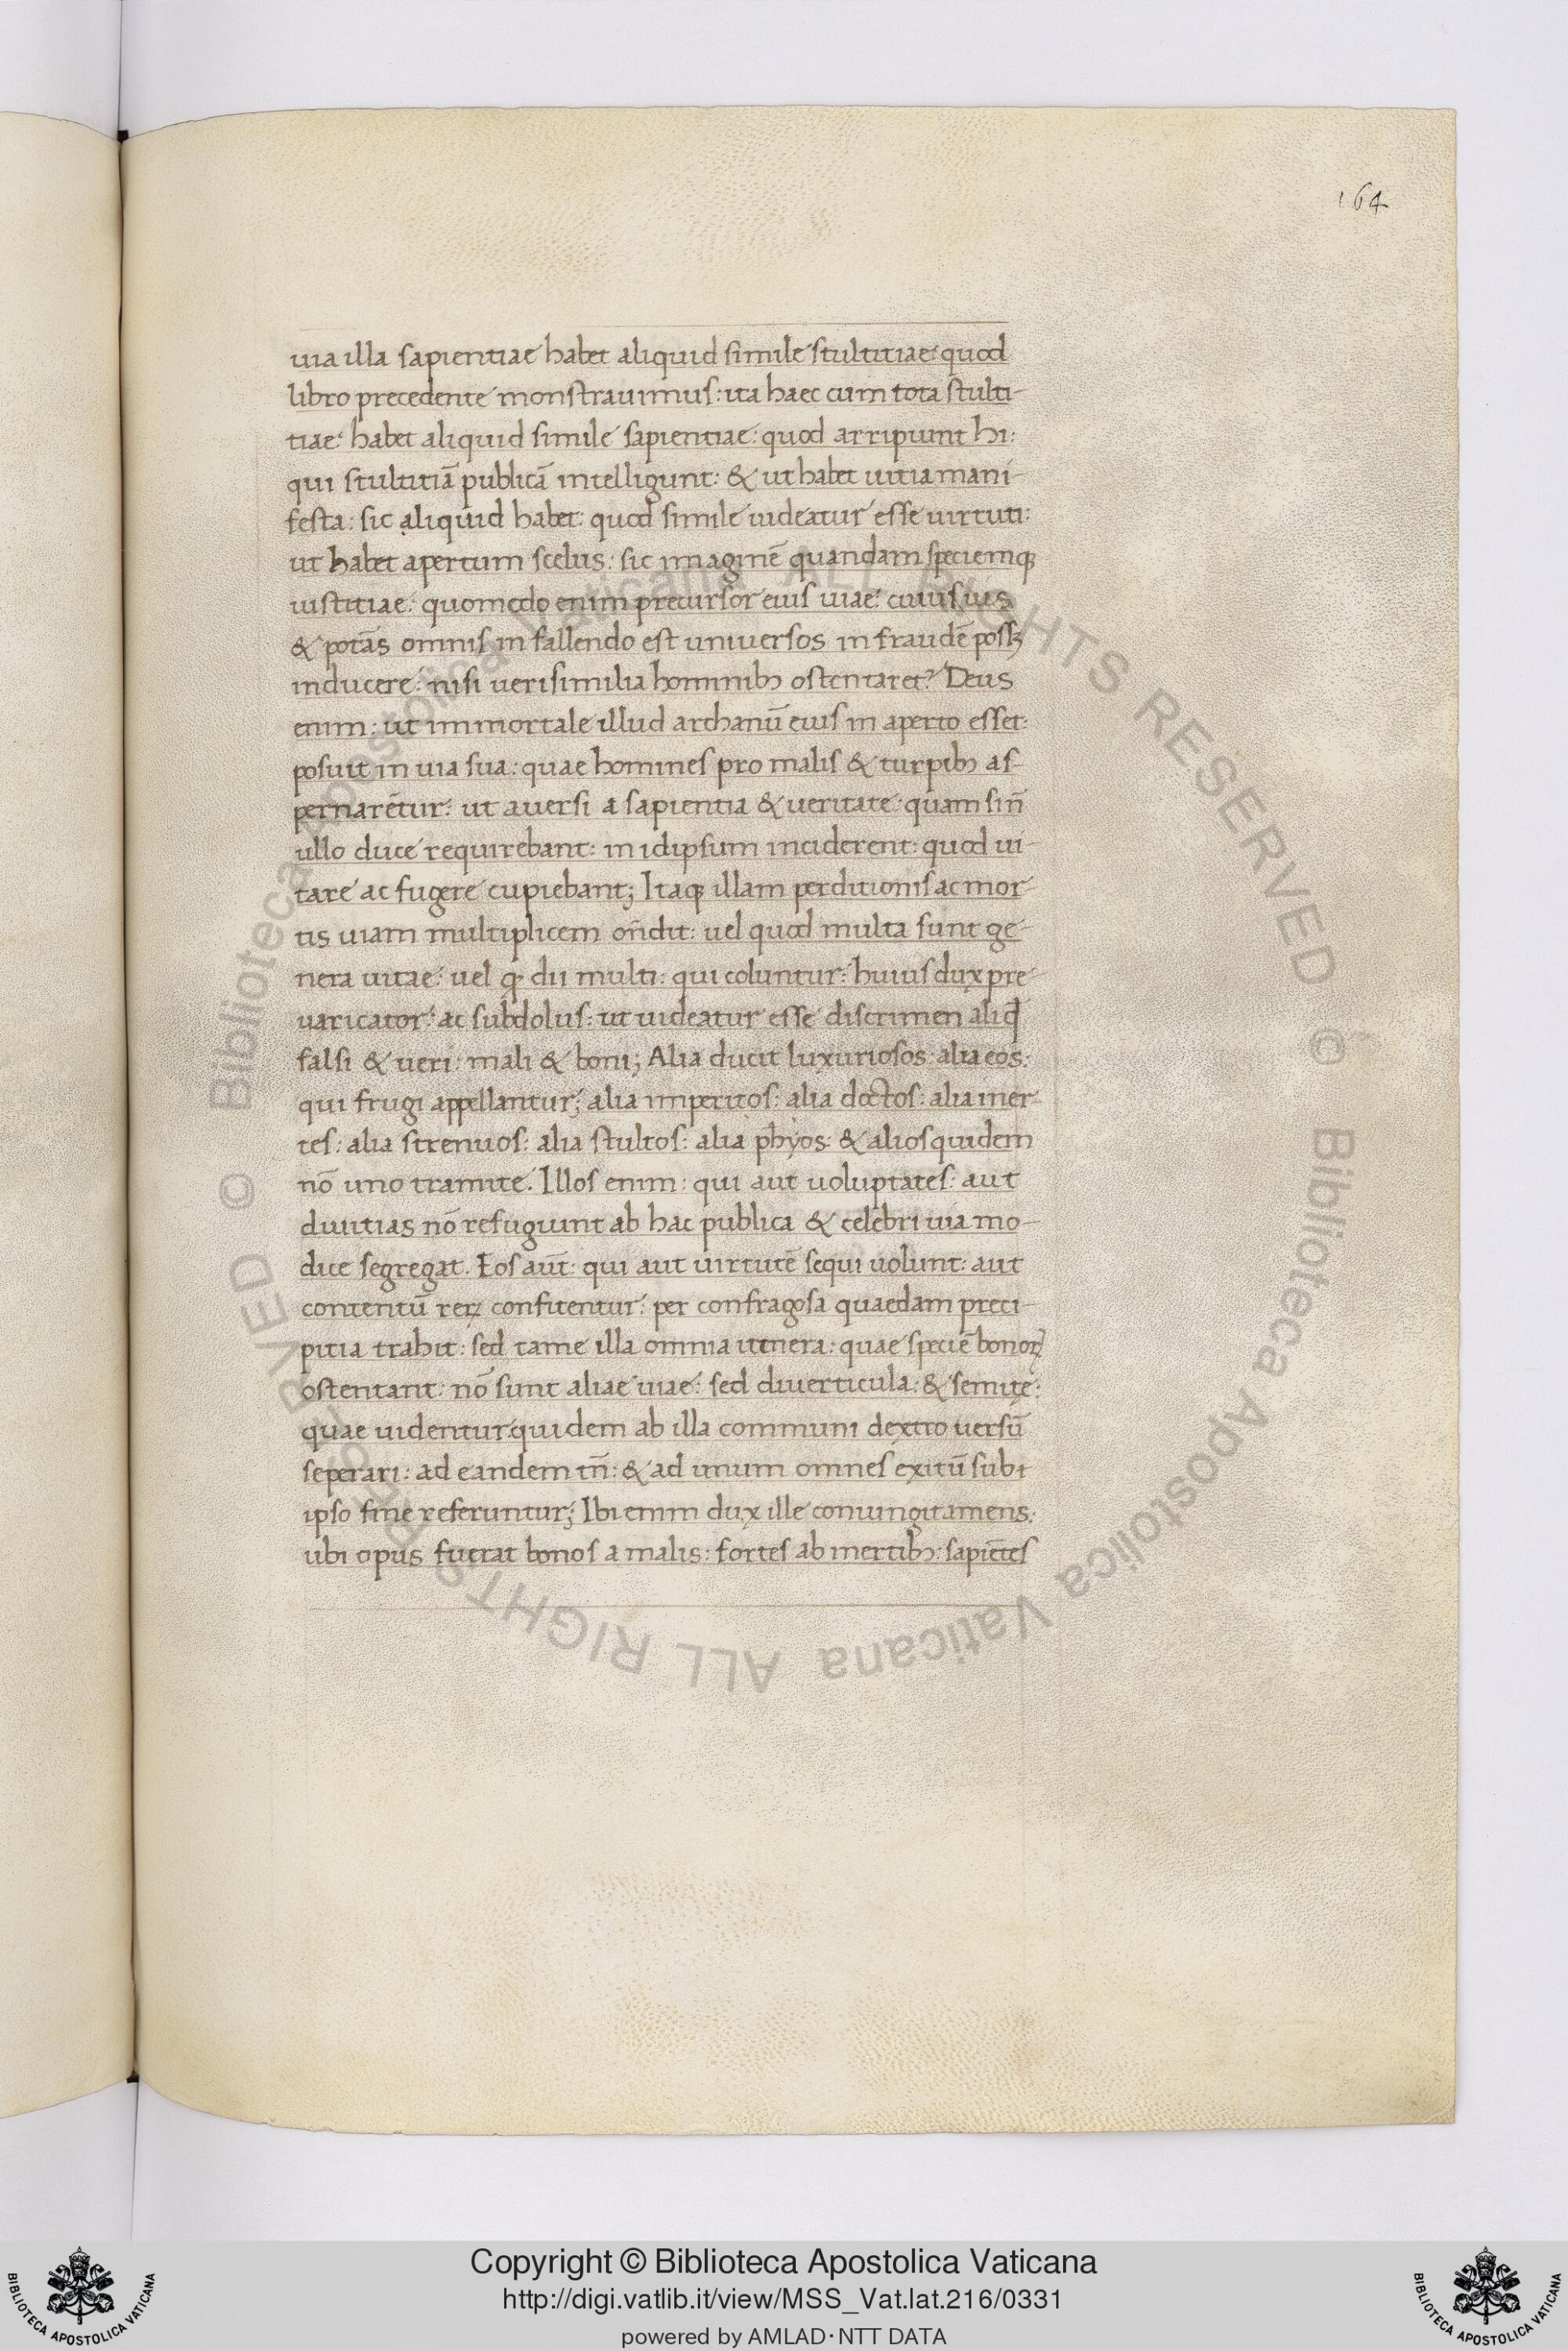 164
uia illa sapientiae habet aliquid simile stultitiae: quod
libro precedente monstrauimus: ita haec cum tota stulti-
tiae: habet aliquid simile sapientiae: quod arripiunt hi:
qui stultitiā publicā intelligunt: & ut habet uitia mani-
festa: sic aliquid habet: quod simile uideatur esse uirtuti:
ut habet apertum scelus: sic imaginē quandam speciemqꝫ
iustitiae: quomodo enim precursor eius uiae: cuius uis
& potās omnis in fallendo est uniuersos in fraudē possꝫ
inducere: nisi uerisimilia hominibꝫ ostentaret? Deus
enim: ut immortale illud archanū eius in aperto esset:
posuit in uia sua: quae homines pro malis & turpibꝫ as-
pernarētur: ut auersi a sapientia & ueritate: quam sin̄
ullo duce requirebant: in idipsum inciderent: quod ui-
tare ac fugere cupiebant; Itaqꝫ illam perditionis ac mor-
tis uiam multiplicem on̄dit: uel quod multa sunt ge-
nera uitae: uel ꝙ dii multi: qui coluntur: huius dux pre-
uaricator: ac subdolus: ut uideatur esse discrimen aliqd̄
falsi & ueri: mali & boni; Alia ducit luxuriosos: alia eos:
qui frugi appellantur; alia imperitos: alia doctos: alia iner-
tes: alia strenuos: alia stultos: alia phyos: & alios quidem
nō uno tramite. Illos enim: qui aut uoluptates: aut
diuitias nō refugiunt ab hac publica & celebri uia mo-
dice segregat. Eos aut̄: qui aut uirtutē sequi uolunt: aut
contentū reꝝ confitentur: per confragosa quaedam preci-
pitia trahit: sed tame illa omnia itinera: quae speciē bonoꝝ
ostentant: nō sunt aliae uiae: sed diuerticula: & semitę:
quae uidentur: quidem ab illa communi dextro uersū
seperari: ad eandem tn̄: & ad unum omnes exitū sub i
ipso fine referuntur; Ibi enim dux ille coniungit amens:
ubi opus fuerat bonos a malis: fortes ab inertibꝫ: sapiētes
© Biblioteca Apostolica Vaticana ALL RIGHTS RESERVED © Biblioteca Apostolica Vaticana ALL RIGHTS RESERVED
Copyright © Biblioteca Apostolica Vaticana
http://digi.vatlib.it/view/MSS_Vat.lat.216/0331
powered by AMLAD·NTT DATA
BIBLIOTECA APOSTOLICA VATICANA
BIBLIOTECA APOSTOLICA VATICANA